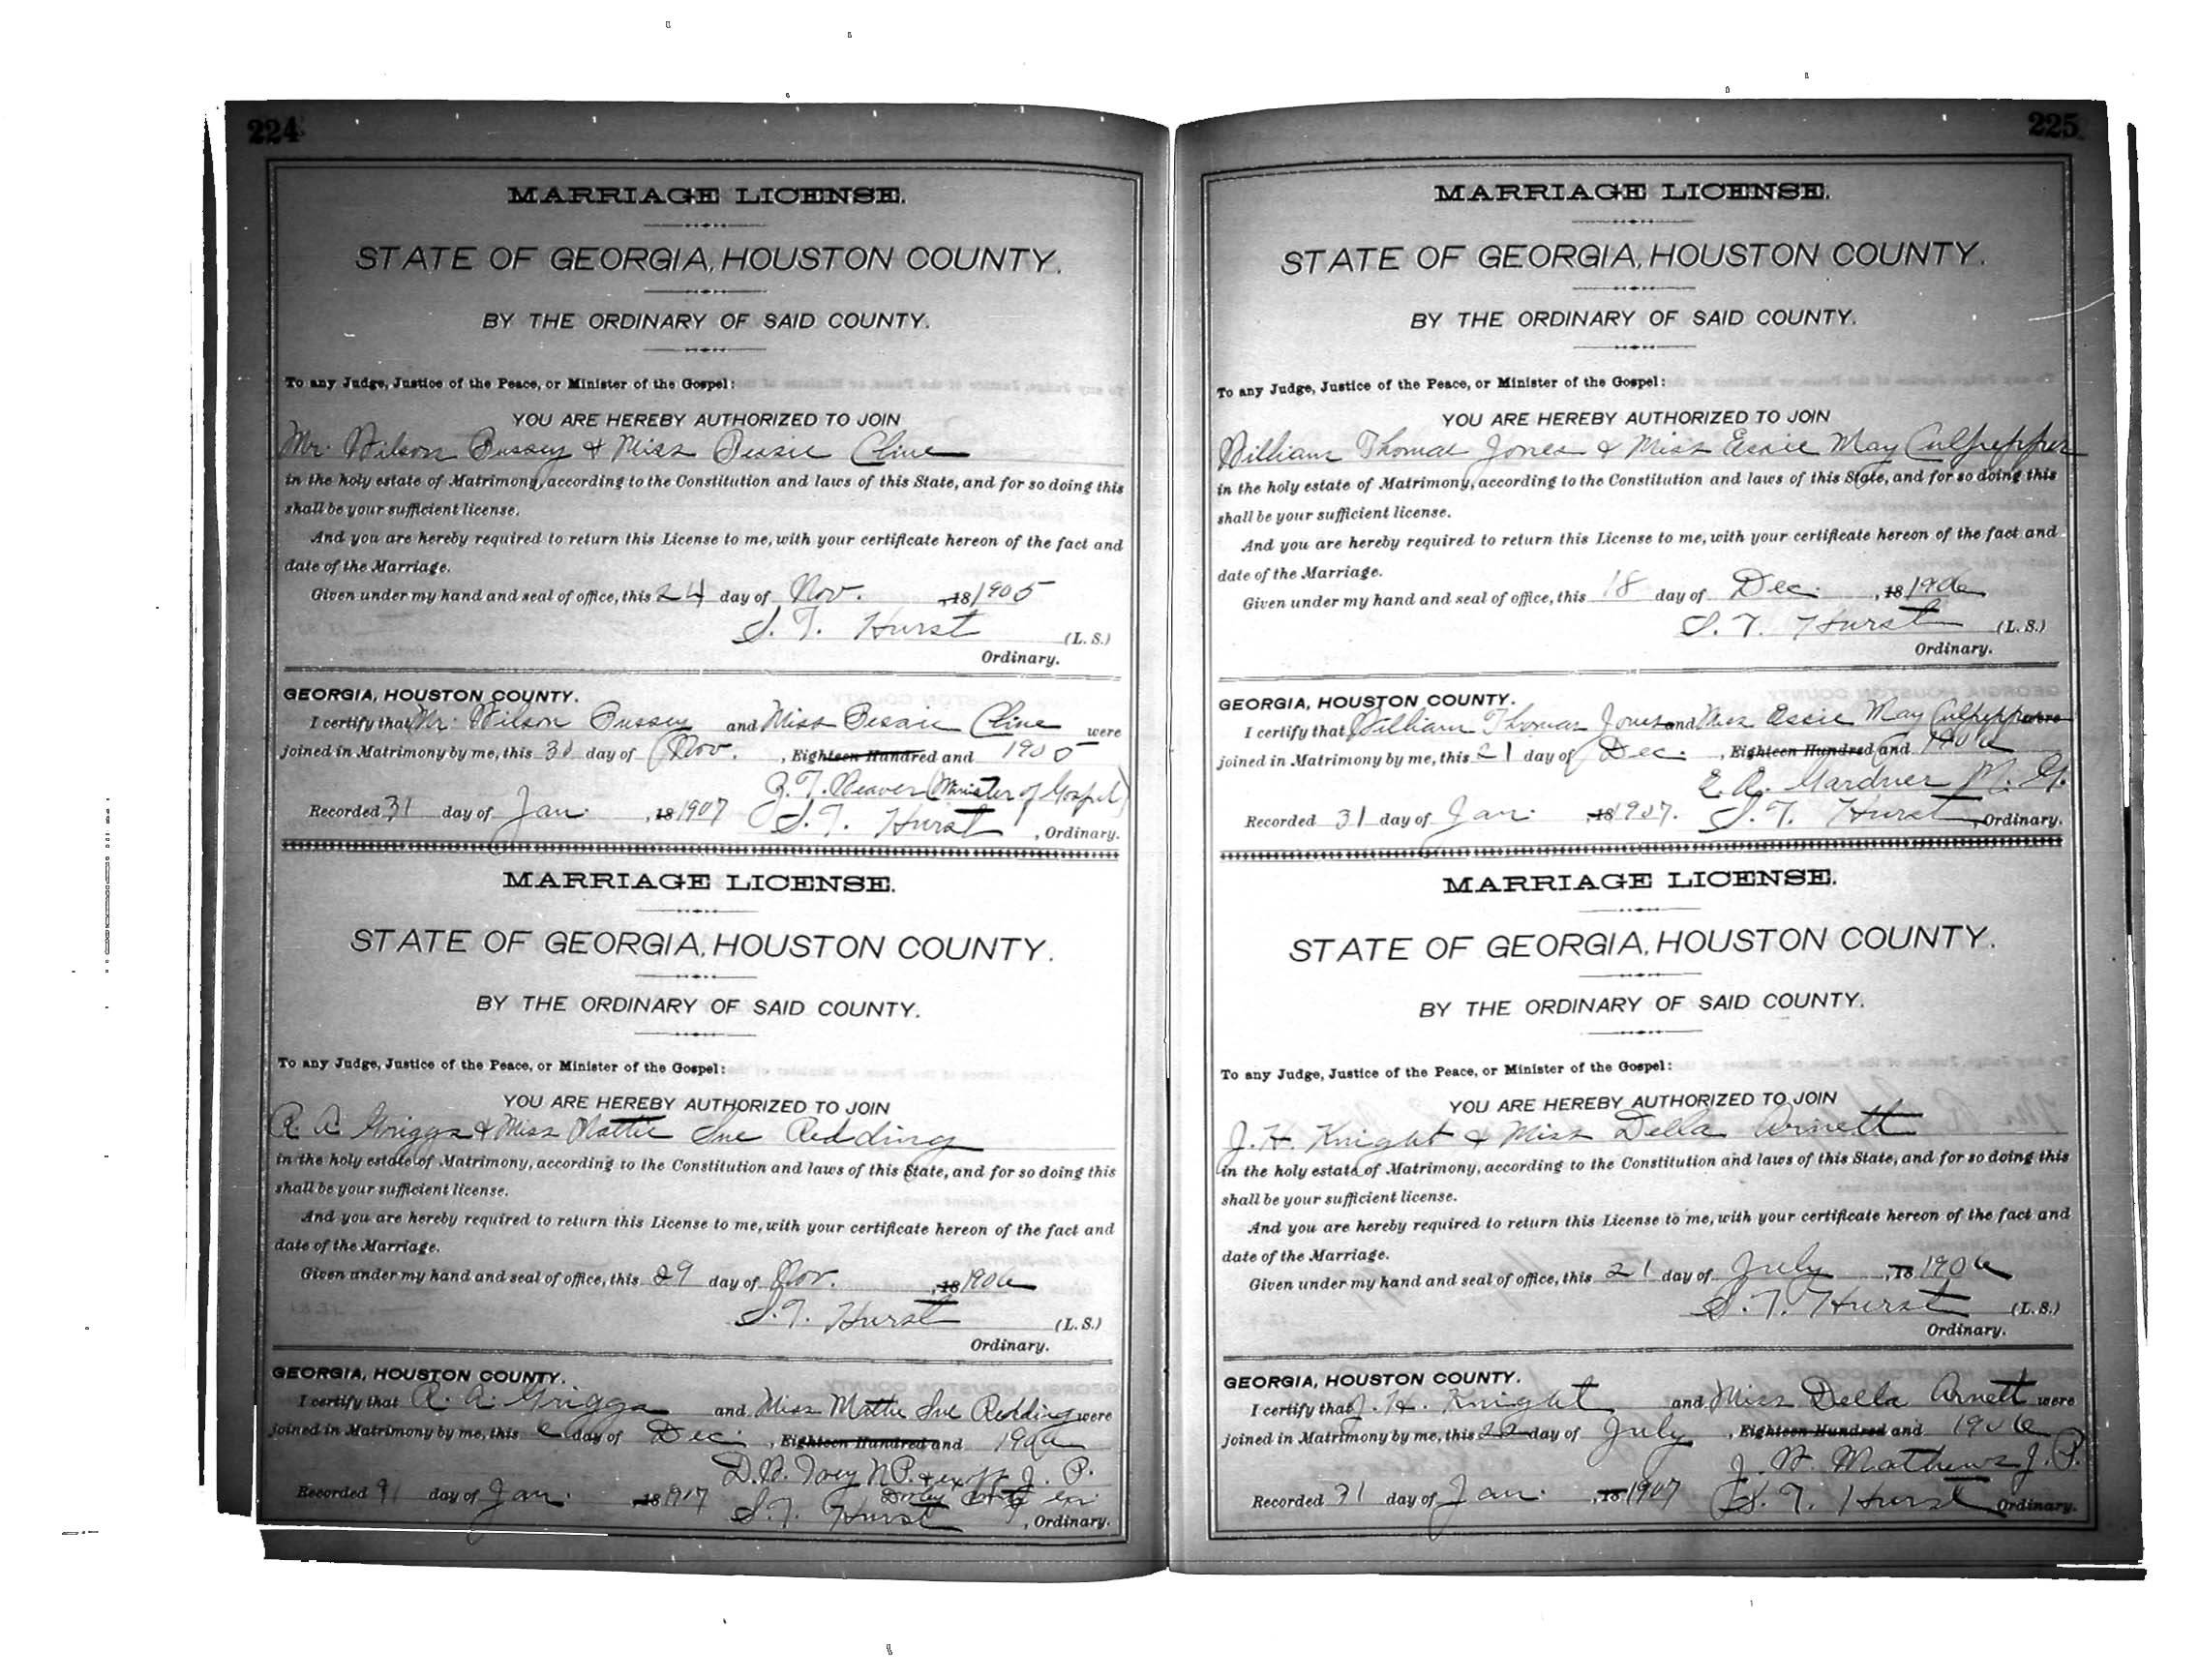 224
MARRIAGE LICENSE.
STATE OF GEORGIA, HOUSTON COUNTY.
BY THE ORDINARY OF SAID COUNTY.
To any Judge, Justice of the Peace, or Minister of the Gospel:
YOU ARE HEREBY AUTHORIZED TO JOIN
Mr. Wilson Bussey & Miss Bessie Cline
in the holy estate of Matrimony, according to the Constitution and laws of this State, and for so doing this
shall be your sufficient license.
And you are hereby required to return this License to me, with your certificate hereon of the fact and
date of the Marriage.
Given under my hand and seal of office, this 24 day of Nov. , 18 1905
S. T. Hurst (L. S.)
Ordinary.
GEORGIA, HOUSTON COUNTY.
I certify that Mr. Wilson Bussey and Miss Bessie Cline were
joined in Matrimony by me, this 30 day of Nov. , Eighteen Hundred and 1905
T. Weaver (Minister of Gospel)
Recorded 31 day of Jan. , 18 1907 S. T. Hurst , Ordinary.
MARRIAGE LICENSE.
STATE OF GEORGIA, HOUSTON COUNTY.
BY THE ORDINARY OF SAID COUNTY.
To any Judge, Justice of the Peace, or Minister of the Gospel:
YOU ARE HEREBY AUTHORIZED TO JOIN
R. A. Griggs & Miss Mattie Sue Redding
in the holy estate of Matrimony, according to the Constitution and laws of this State, and for so doing this
shall be your sufficient license.
And you are hereby required to return this License to me, with your certificate hereon of the fact and
date of the Marriage.
Given under my hand and seal of office, this 29 day of Nov. , 18 1906
S. T. Hurst (L. S.)
Ordinary.
GEORGIA, HOUSTON COUNTY.
I certify that R. A. Griggs and Miss Mattie Sue Redding were
joined in Matrimony by me, this 6 day of Dec. , Eighteen Hundred and 1906
D. B. Ivey N.P. & ex off J. P.
Recorded 31 day of Jan. 18 1907 S. T. Hurst , Ordinary.
225
MARRIAGE LICENSE.
STATE OF GEORGIA, HOUSTON COUNTY.
BY THE ORDINARY OF SAID COUNTY.
To any Judge, Justice of the Peace, or Minister of the Gospel:
YOU ARE HEREBY AUTHORIZED TO JOIN
William Thomas Jones & Miss Essie May Culpepper
in the holy estate of Matrimony, according to the Constitution and laws of this State, and for so doing this
shall be your sufficient license.
And you are hereby required to return this License to me, with your certificate hereon of the fact and
date of the Marriage.
Given under my hand and seal of office, this 18 day of Dec. , 18 1906
S. T. Hurst (L. S.)
Ordinary.
GEORGIA, HOUSTON COUNTY.
I certify that William Thomas Jones and Miss Essie May Culpepper were
joined in Matrimony by me, this 21 day of Dec. , Eighteen Hundred and 1906
E. A. Gardner M. G.
Recorded 31 day of Jan. , 18 1907. S. T. Hurst , Ordinary.
MARRIAGE LICENSE.
STATE OF GEORGIA, HOUSTON COUNTY.
BY THE ORDINARY OF SAID COUNTY.
To any Judge, Justice of the Peace, or Minister of the Gospel:
YOU ARE HEREBY AUTHORIZED TO JOIN
J. H. Knight & Miss Della Arnett
in the holy estate of Matrimony, according to the Constitution and laws of this State, and for so doing this
shall be your sufficient license.
And you are hereby required to return this License to me, with your certificate hereon of the fact and
date of the Marriage.
Given under my hand and seal of office, this 21 day of July , 18 1906
S. T. Hurst (L. S.)
Ordinary.
GEORGIA, HOUSTON COUNTY.
I certify that J. H. Knight and Miss Della Arnett were
joined in Matrimony by me, this 22 day of July , Eighteen Hundred and 1906
Mathews J. P.
Recorded 31 day of Jan. , 18 1907 S. T. Hurst Ordinary.